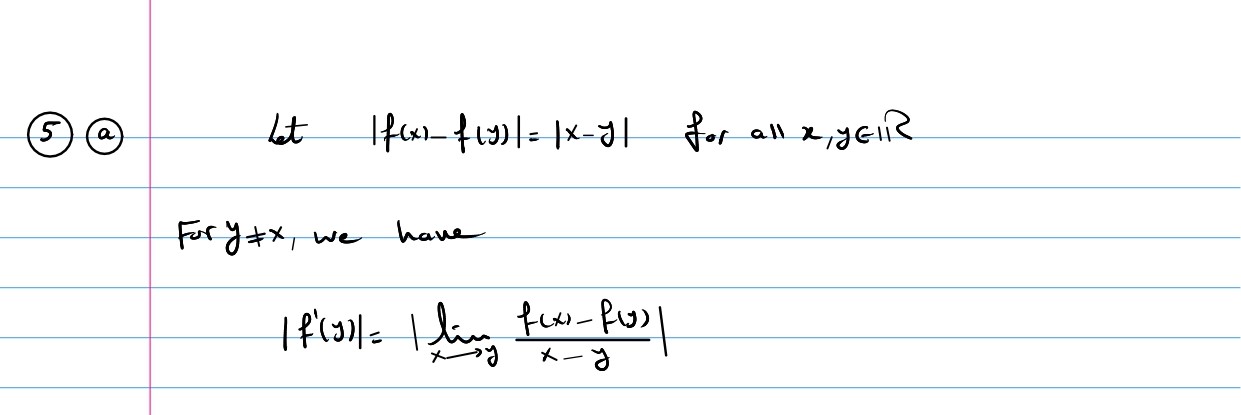 ⑤ ⓐ Let |f(x)-f(y)|=|x-y| for all x,y∈ℝ
For y≠x, we have
|f'(y)|= |lim_{x→y} \frac{f(x)-f(y)}{x-y}|